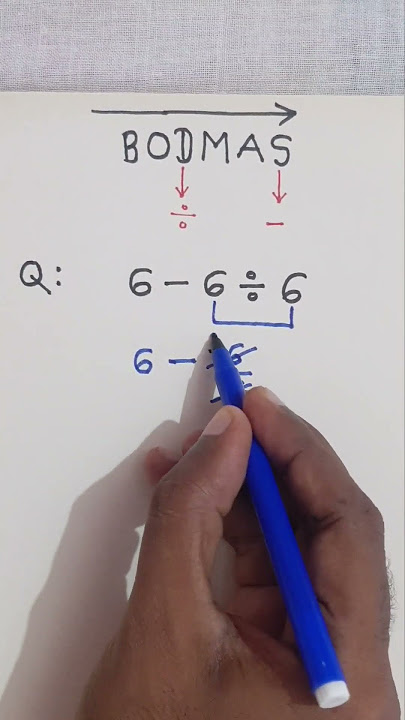 BODMAS
÷ −
Q: 6 − 6 ÷ 6
6 − 6